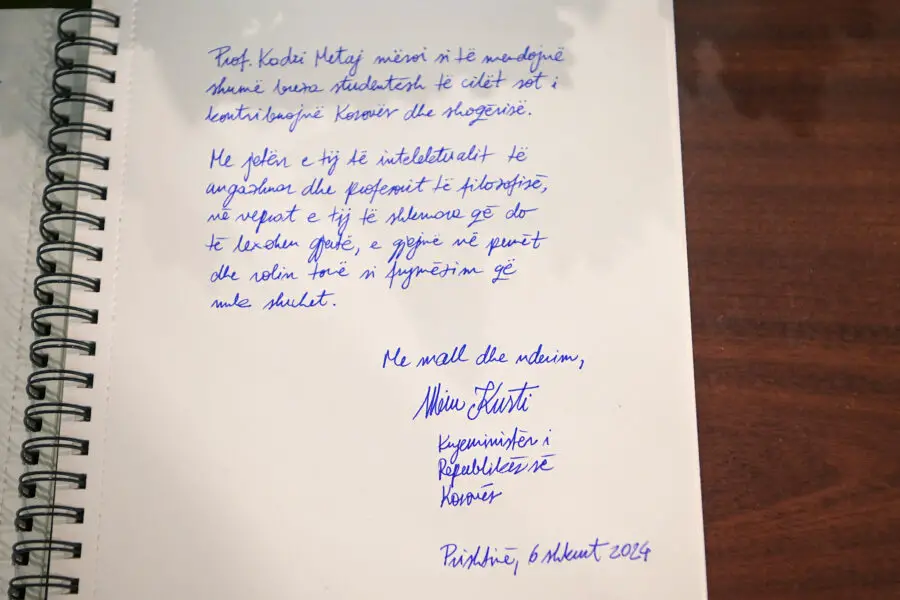 Prof. Kadri Metaj mësoi si të mendojnë
shumë breza studentësh të cilët sot i
kontribuojnë Kosovës dhe shoqërisë.
Me jetën e tij të intelektualit të
angazhuar dhe profesorit të filozofisë,
në veprat e tij të shkruara që do
të lexohen gjatë, e gjejnë në penët
dhe rolin tonë si frymëzim që
nuk shuhet.
Me mall dhe nderim,
Albin Kurti
Kryeministër i
Republikës së
Kosovës
Prishtinë, 6 shkurt 2024